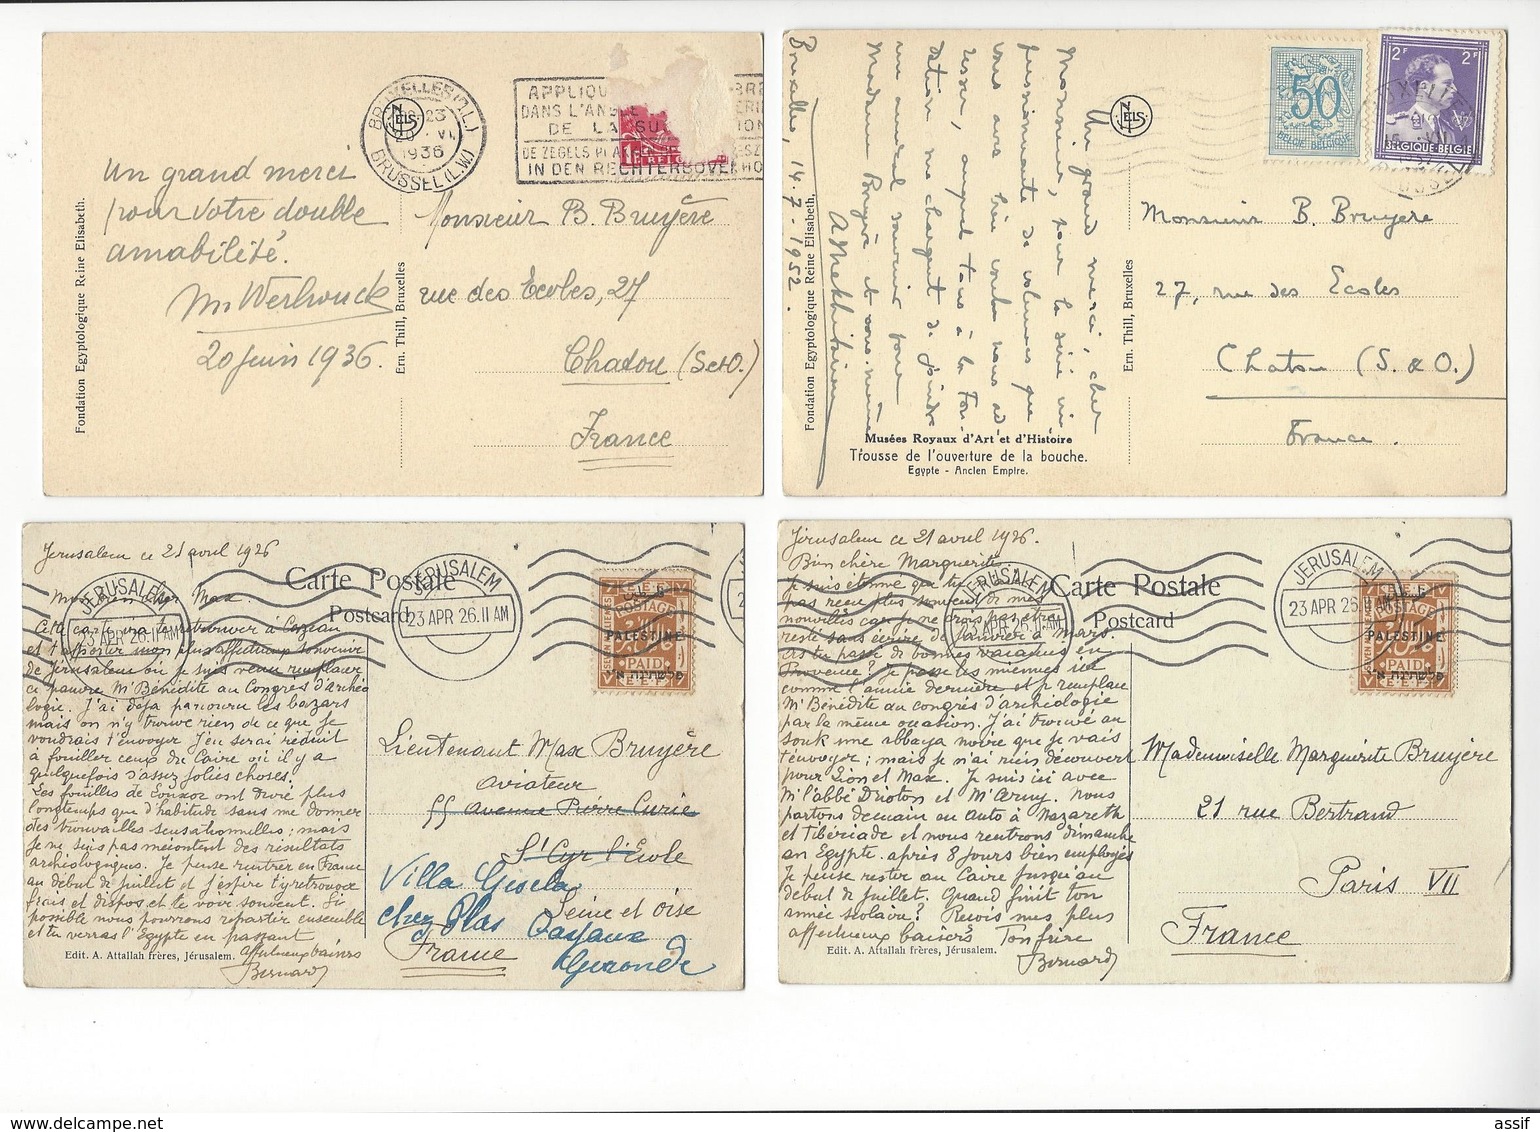 BRUXELLES (1.L.)
23
20 · VI.
1936
BRUSSEL (L.W.)
NELS
APPLIQU
DANS L'ANGLE
DE LA SU
DE ZEGELS PLA
IN DEN RECHTERBOVENHO
Un grand merci
pour votre double
amabilité.
M Werbrouck
20 juin 1936.
Fondation Egyptologique Reine Elisabeth.
Ern. Thill, Bruxelles
Monsieur B. Bruyère
rue des Ecoles, 27
Chatou (S et O.)
France
Bruxelles, 14-7-1952.
Un grand merci, cher
Monsieur, pour la série im
pressionnante de volumes que
vous avez bien voulu nous ad
resser, auquel tous à la Fon-
dation me chargent de joindre
un amical souvenir pour
Madame Bruyère et vous-même
A Mekhitarian
Fondation Egyptologique Reine Elisabeth.
NELS
Ern. Thill, Bruxelles
50
c
BELGIE BELGIQUE
2F 2F
BELGIQUE-BELGIE
Monsieur B. Bruyère
27, rue des Ecoles
Chatou (S. & O.)
France.
Musées Royaux d'Art et d'Histoire
Trousse de l'ouverture de la bouche.
Egypte - Ancien Empire.
Jerusalem ce 21 avril 1926
Carte Postale
Postcard
JERUSALEM
23 APR 26.11 AM
JERUSALEM
23 APR 26.11 AM
E.E.F.
POSTAGE
PALESTINE
PAID
E.E.F.
mon bien cher Max.
Cette carte va te retrouver à Cazeau
et t'apporter mon plus affectueux souvenir
de Jérusalem où je suis venu remplacer
ce pauvre Mr Bénédite au Congrès d'archéo
logie. J'ai déjà parcouru les bazars
mais on n'y trouve rien de ce que je
voudrais t'envoyer J'en serai réduit
à fouiller ceux du Caire où il y a
quelquefois d'assez jolies choses.
Les fouilles de Louxor ont duré plus
longtemps que d'habitude sans me donner
des trouvailles sensationnelles; mais
je ne suis pas mécontent des résultats
archéologiques. Je pense rentrer en France
au début de juillet et j'espère t'y retrouver
frais et dispos et te voir souvent. Si
possible nous pourrons repartir ensemble
et tu verras l'Egypte en passant
affectueux baisers
Bernard
Edit. A. Attallah frères, Jérusalem.
Lieutenant Max Bruyère
aviateur
55 avenue Pierre Curie
St Cyr l'Ecole
Seine et Oise
France
Villa Gisela
chez Blas
Cazaux
Gironde
Jérusalem ce 21 avril 1926.
Carte Postale
Postcard
JERUSALEM
23 APR 26.11 AM
JERUSALEM
23 APR 26.11 AM
POSTAGE
PALESTINE
PAID
E.E.F.
Bien chère Marguerite
je suis étonné que tu
pas reçu plus souvent de mes
nouvelles car je ne crois pas être
resté sans écrire de Janvier à Mars.
As tu passé de bonnes vacances en
Provence? Je passe les miennes ici
comme l'année dernière et je remplace
Mr Bénédite au congrès d'archéologie
par la même occasion. J'ai trouvé au
souk une abbaya noire que je vais
t'envoyer; mais je n'ai rien découvert
pour Lion et Max. Je suis ici avec
Mr l'abbé Drioton et Mr Cerny. Nous
partons demain en auto à Nazareth
et Tibériade et nous rentrons dimanche
en Egypte après 8 jours bien employés
Je pense rester au Caire jusqu'au
début de juillet. Quand finit ton
année scolaire? Reçois mes plus
affectueux baisers Ton frère
Bernard
Edit. A. Attallah frères, Jérusalem.
Mademoiselle Marguerite Bruyère
21 rue Bertrand
Paris VII
France
assif